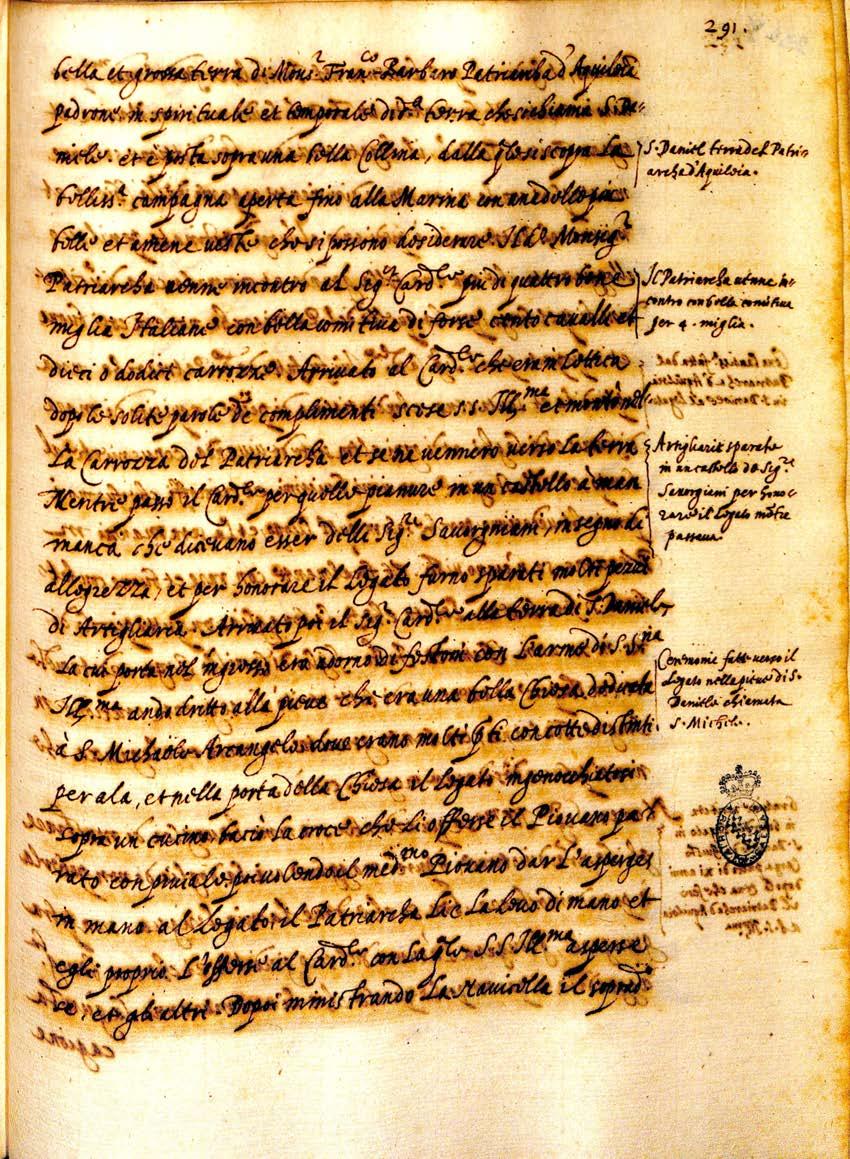 291.
bella et grossa terra di Mons.r Fran.co Barbaro Patriarcha d'Aquileia
padrone in spirituale et temporale di d.a terra che si chiama S. Da-
niele. et è posta sopra una bella Collina, dalla q̃le si scopre la
belliss.a campagna aperta fino alla Marina con una delle più
belle et amene viste che si possono desiderare. Il d.o Monsig.r
Patriarcha venne incontro al Sig.r Card.le più di quattro bone
miglia Italiane con bella comitiva di forse cento cavalli et
dieci o dodici carrozze. Arrivato al Card.le che era in lettica
dopo le solite parole de complimenti scese S.S. Ill.ma et montò nel
La Carrozza del Patriarcha et se ne vennero verso la terra
Mentre passò il Card.le per quelle pianure in un castello à man
manca che dicevano esser delli Sig.ri Savorgniani, in segno di
allegrezza, et per honorare il Legato furno sparati molti pezzi
di Artigliaria. Arrivato poi il Sig.r Card.le alla terra di S. Daniele
la cui porta nel ingresso era adorno di festoni con l'arme di S. S.ria
Ill.ma andò dritto alla pieve che era una bella Chiesa dedicata
à S. Michaele Arcangelo dove erano molti p̃ti con cotte distinti
per ala, et nella porta della Chiesa il Legato ingenocchiatosi
sopra un cucino baciò la croce che li offerse il Piovano pa-
rato con piviale, poi volendo il med.mo Piovano dar l'asperges
in mano al Legato, il Patriarcha lie la levò di mano et
egli proprio l'offerse al Card.le con la q̃le S.S. Ill.ma asperse
se, et gli altri. Dopoi ministrando la Navicella il soprad.o
S. Daniel terra del Patri-
archa d'Aquileia.
Il Patriarcha venne in-
contro con bella comitiva
per 4. miglia.
Artigliarie sparate
in un castello de Sig.ri
Savorgiani per hono-
rare il Legato mẽtre
passava.
Ceremonie fatte verso il
Legato nella pieve di S.
Daniele chiamata
S. Michele.